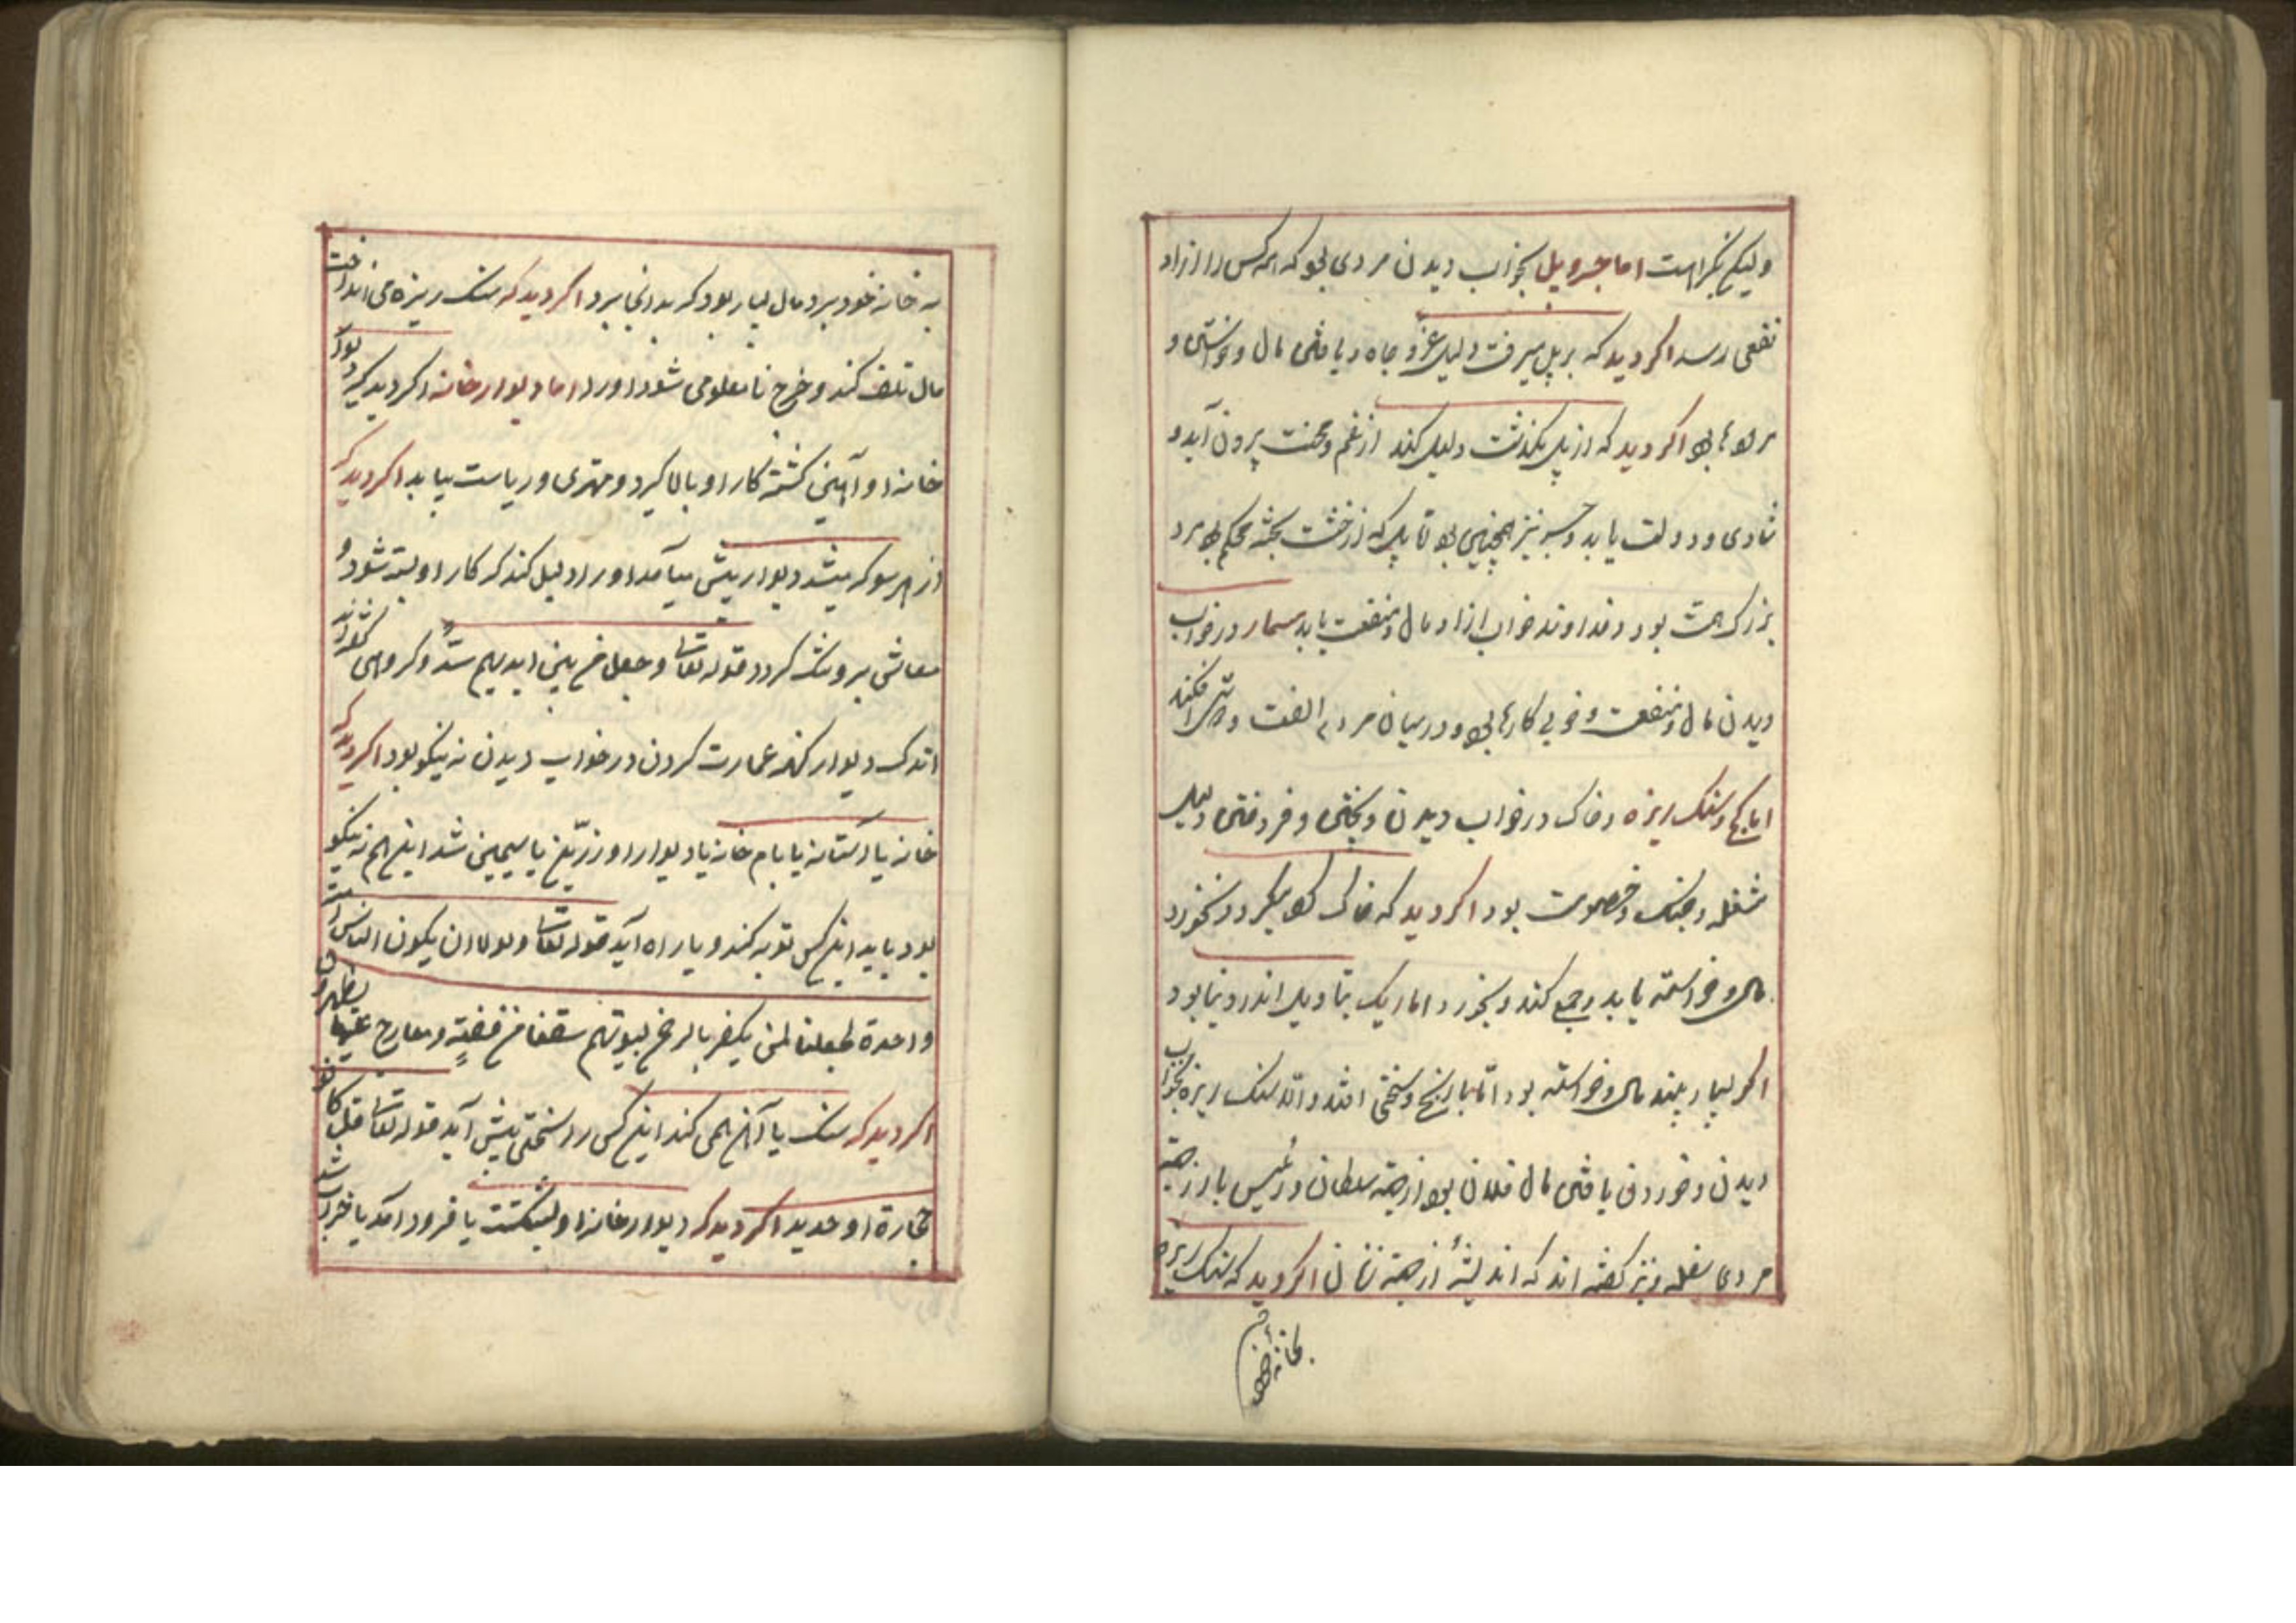 ولیکن بکراهت اما جسر و پل بخواب دیدن مردی بود که همه کس را ازاو
نفعی رسد اکر دید که بر پل میرفت دلیل عز و جاه و یافتن مال و خواستی و
بود اکر دید که از پل بکذشت دلیل کند از غم و محنت بیرون آید و
شادی و دولت یابد و جسر نیز همچنین بود تا پل که از خشت پخته محکم بود مرد
بزرک همت بود و خداوند خواب ازاو مال و منفعت یابد مسمار در خواب
دیدن مال و منفعت و خوبی کارها بود و در میان مردم الفت و افکند
اما کچ و سنک ریزه و خاک در خواب دیدن و پختن و فروختن دلیل
مشغله و جنک و خصومت بود اکر دید که خاک کرد میکرد و نخورد
مال و خواسته یابد و جمع کند و نخورد اما ریک بتاویل اندر دنیا بود
اکر بسیار بیند مال و خواسته بود اما با رنج و سختی افتد و اند سنک ریزه بخواب
دیدن و خوردن یافتن مال فلان بود از جهة سلطان و رئیس یا از جهة
مردی سفله و نیز کفته اند که اندیشهٔ از جهة زنان اکر دید که سنک ریزه
بخانه خود
به خانه خود برد مال بسیار بود که بدانجا برد اکر دید که سنک ریزه می انداخت
مال تلف کند و خرج نا معلومی شود اورا اما دیوار خانه اکر دید که دیوار
خانه او آهنین کشته کار او بالا کیرد و مهتری و ریاست بیابد اکر دید که
از هر سو که میشد دیوار پیش میآمد اورا دلیل کند که کار او بسته شود و
معاش برو تنک کردد قوله تعالی و جعل من بین ایدیهم سدًّا و کروهی کفته اند
اندک دیوار کهنه عمارت کردن در خواب دیدن نه نیکو بود اکر دید که
خانه یا آستانه یا بام خانه یا دیوار او زرّین یا سیمین شد این هم نه نیکو
بود باید این کس توبه کند و با راه آید قوله تعالی و لولا ان یکون الناس امت
واحدة لجعلنا لمن یکفر بالرحمن لبیوتهم سقفا من فضةٍ و معارج علیها یظهرون
اکر دید که سنک یا آهن همی کند این کس را سختی پیش آید قوله تعالی قل کونوا
حجارة او حدید اکر دید که دیوار خانه او بشکست یا فرود آمد یا خراب شد